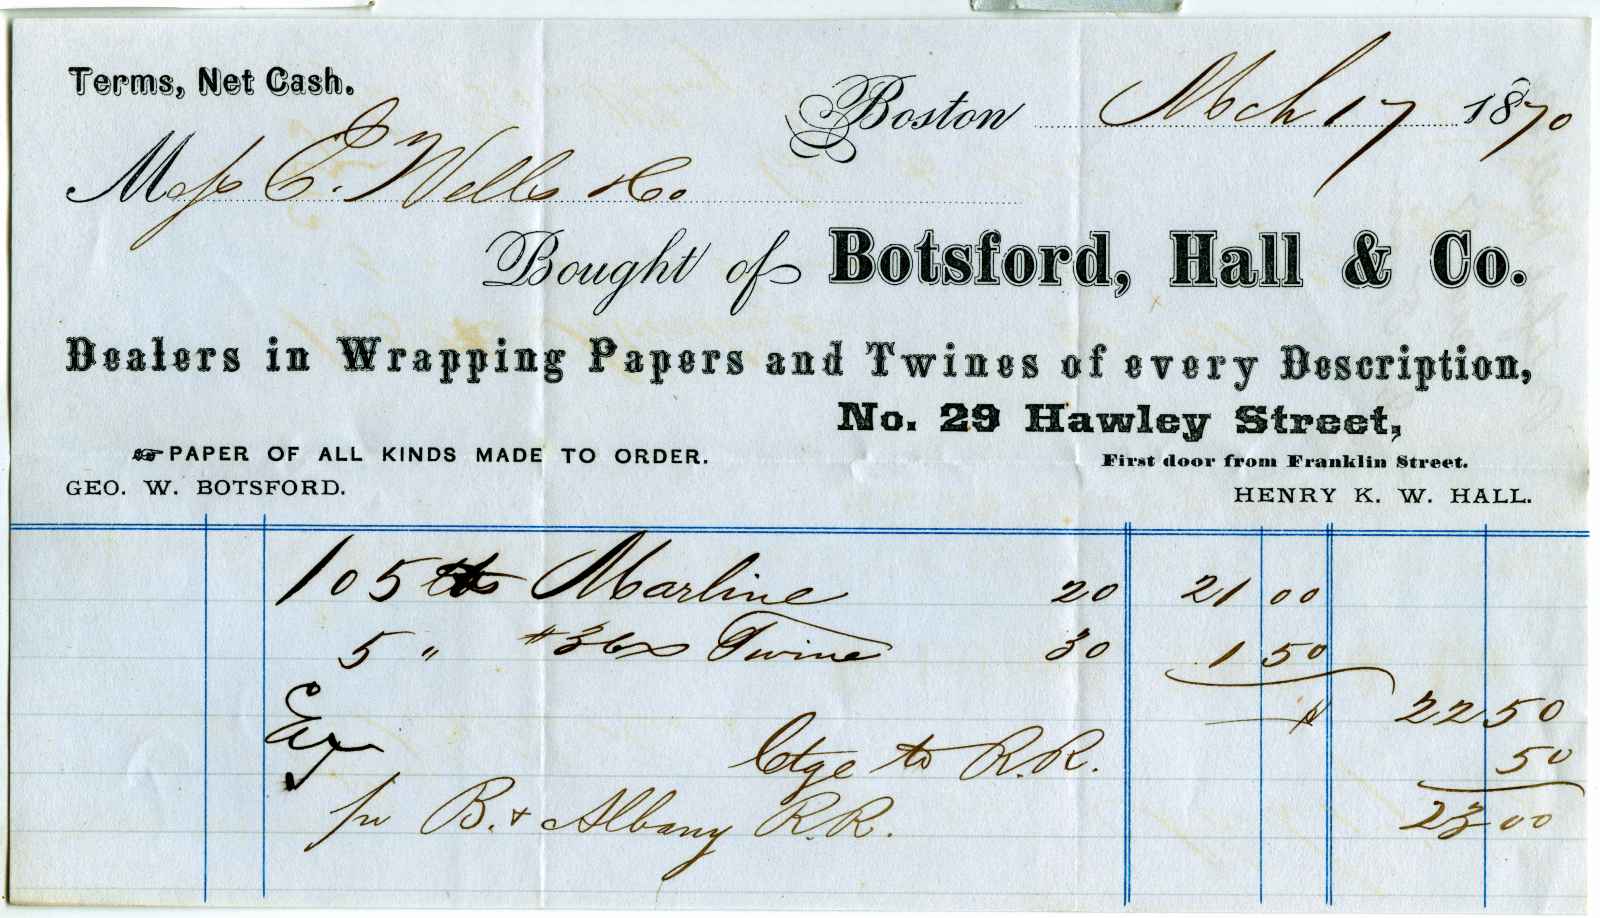 Terms, Net Cash.
Boston Mch 17 1870
Mess E. Wells & Co
Bought of Botsford, Hall & Co.
Dealers in Wrapping Papers and Twines of every Description,
No. 29 Hawley Street,
☞PAPER OF ALL KINDS MADE TO ORDER.
First door from Franklin Street.
GEO. W. BOTSFORD. HENRY K. W. HALL.
105 lbs Marline 20 21 00
5 " Twine 30 1 50
22 50
Ctge to R.R. 50
pr B. & Albany R.R. 23 00